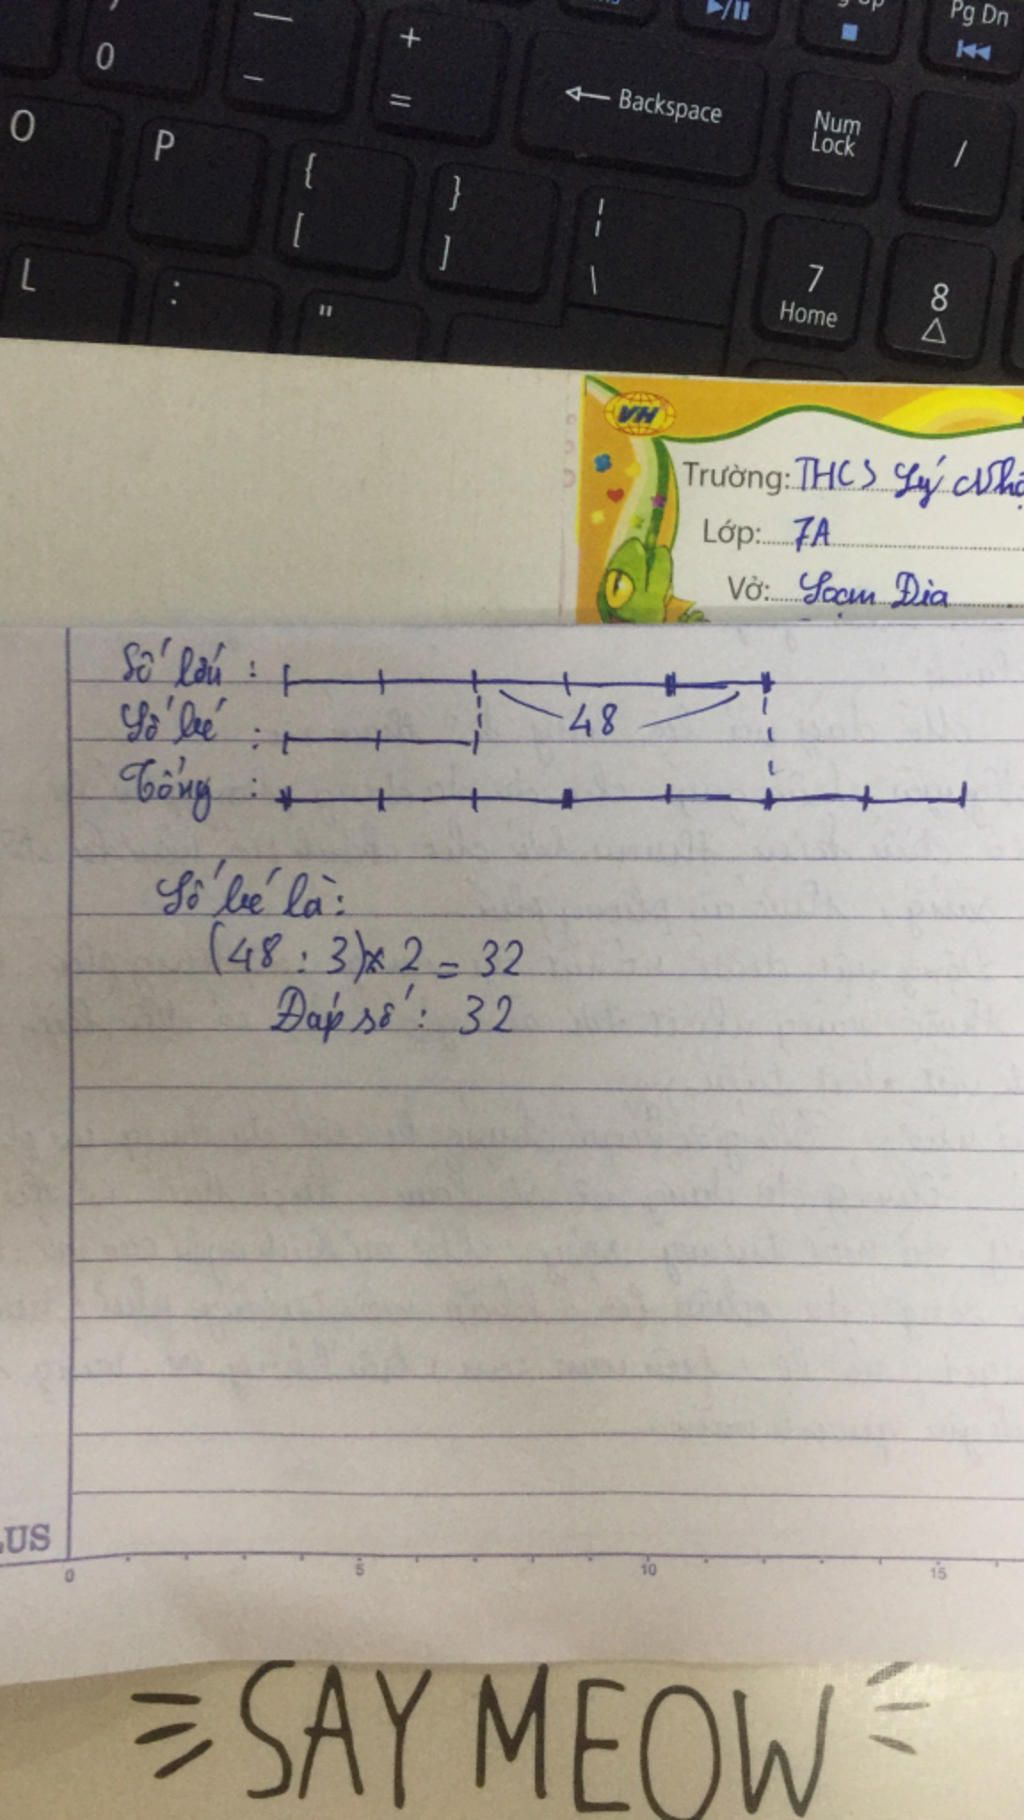 Pg Dn
0
—
-
+
=
Backspace
Num
Lock
/
O
P
{
[
}
]
¦
\
7
Home
8
L
:
"
VH
Trường: THCS Lý
Lớp: 7A
Vở: Soạn Địa
Số lớn :
48
Số bé :
Tổng :
Số bé là:
(48 : 3) x 2 = 32
Đáp số : 32
LUS
0 5 10 15
SAY MEOW